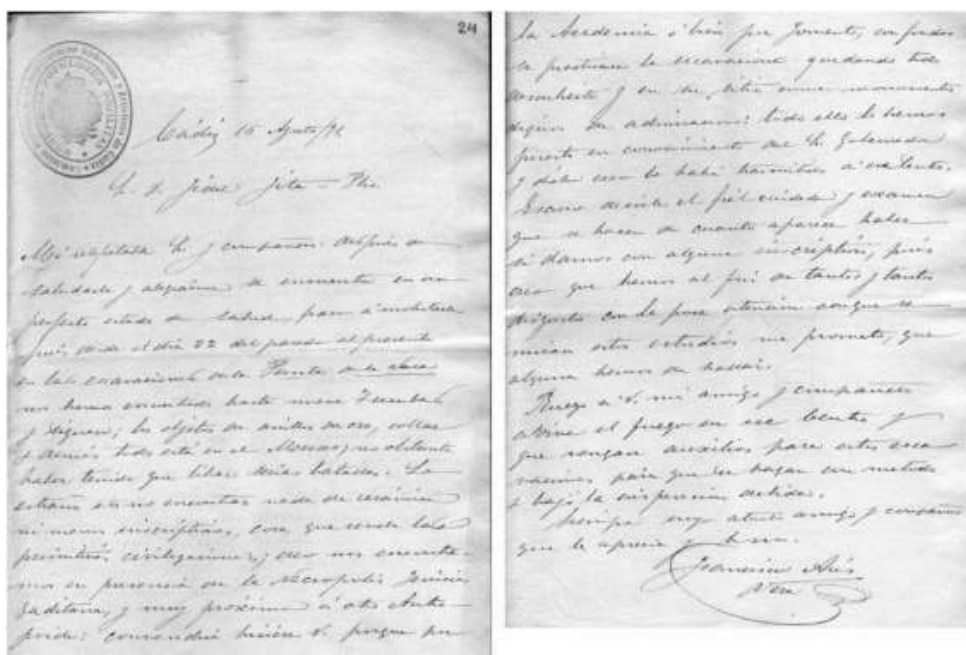 24
Cádiz 15 Agosto/91
Sr. D. Fidel Fita - Pbro
Mi respetable Sr. y compañero: después de
saludarle y alegrarme se encuentre en un
perfecto estado de salud, paso a
pués desde el día 22 del pasado al presente
en las escavaciones de la Punta de la Vaca
nos hemos encontrado hasta nueve Tumbas
y siguen, los objetos de anillos de oro, collar
y demás todo está en el Museo; no obstante
haber tenido que librar batallas. Lo
estraño es no encontrar nada de cerámica
ni menos inscripción, cosa que revela las
primitivas civilizaciones, creo nos encontra-
mos en presencia de la Necrópolis Fenicia
Gaditana, y muy próxima a otra Ante-
: convendría hiciera V. porque por
la Academia ó bien por Fomento, con fondos
se practicara la escavacion quedando todo
descubierto y en su sitio como monumento
digno de admiracion: todo ello lo hemos
puesto en conocimiento del Sr. Gobernador
y éste creo lo habrá trasmitido á ese Centro.
el fiel cuidado y examen
que se hacen de cuanto aparece haber
si damos con alguna inscripción, pués
creo que hemos al fin de tantos y tantos
disgustos con la poca atención conque se
miran estos estudios me prometo, que
alguna hemos de hallar.
Ruego á V. mi amigo y compañero
avive el fuego en ese Centro y
que vengan auxilios para estas esca-
vaciones para que se hagan con metodo
y bajo la inspeccion debida.
Siempre suyo atento amigo y compañero
que le aprecia y b. s. m.
Francisco Asís
Vera